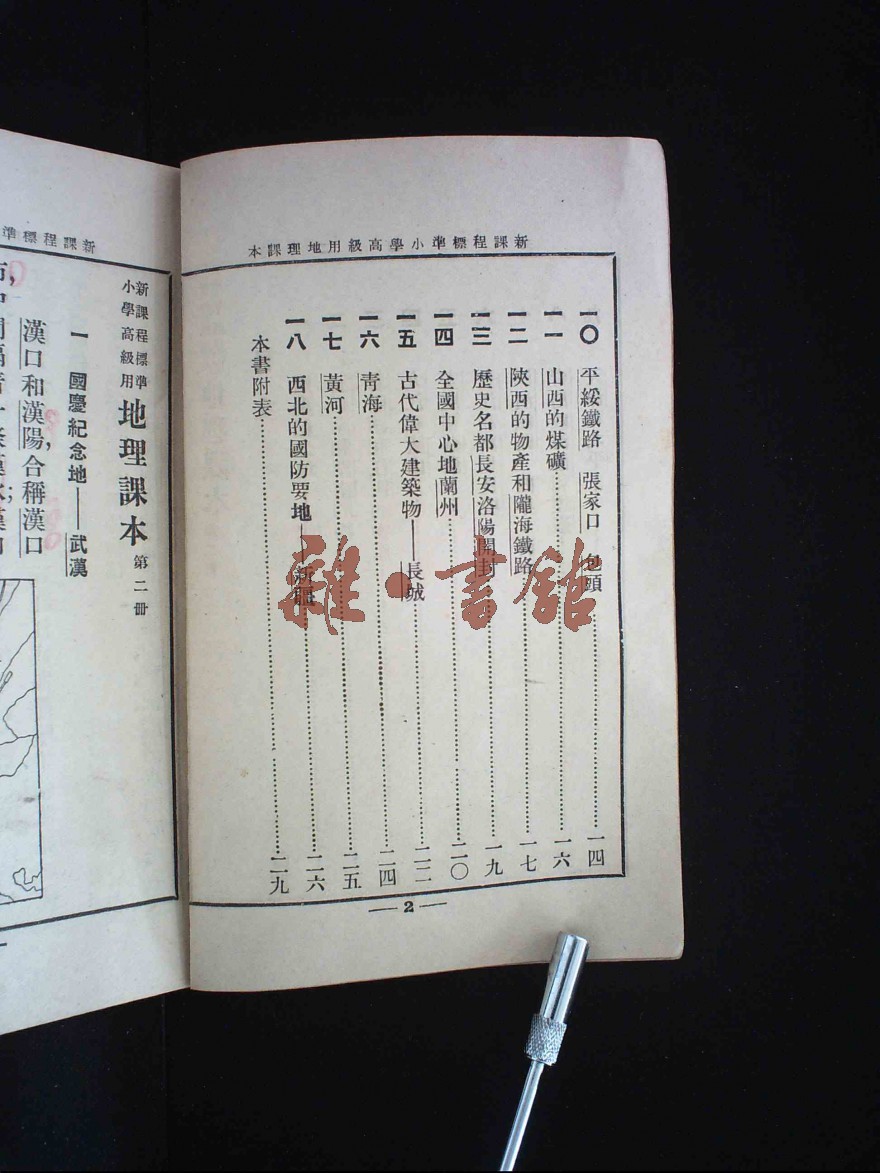 新課程標準小學高級用地理課本
一〇 平綏鐵路 張家口 包頭……一四
一一 山西的煤礦……一六
一二 陝西的物產和隴海鐵路……一七
一三 歷史名都長安洛陽開封……一九
一四 全國中心地蘭州……二〇
一五 古代偉大建築物——長城……二二
一六 青海……二四
一七 黃河……二五
一八 西北的國防要地——新疆……二六
本書附表……二九
— 2 —
新課程標準
新課程標準
小學高級用
地理課本 第二冊
一 國慶紀念地——武漢
漢口和漢陽,合稱漢口
雜·書館